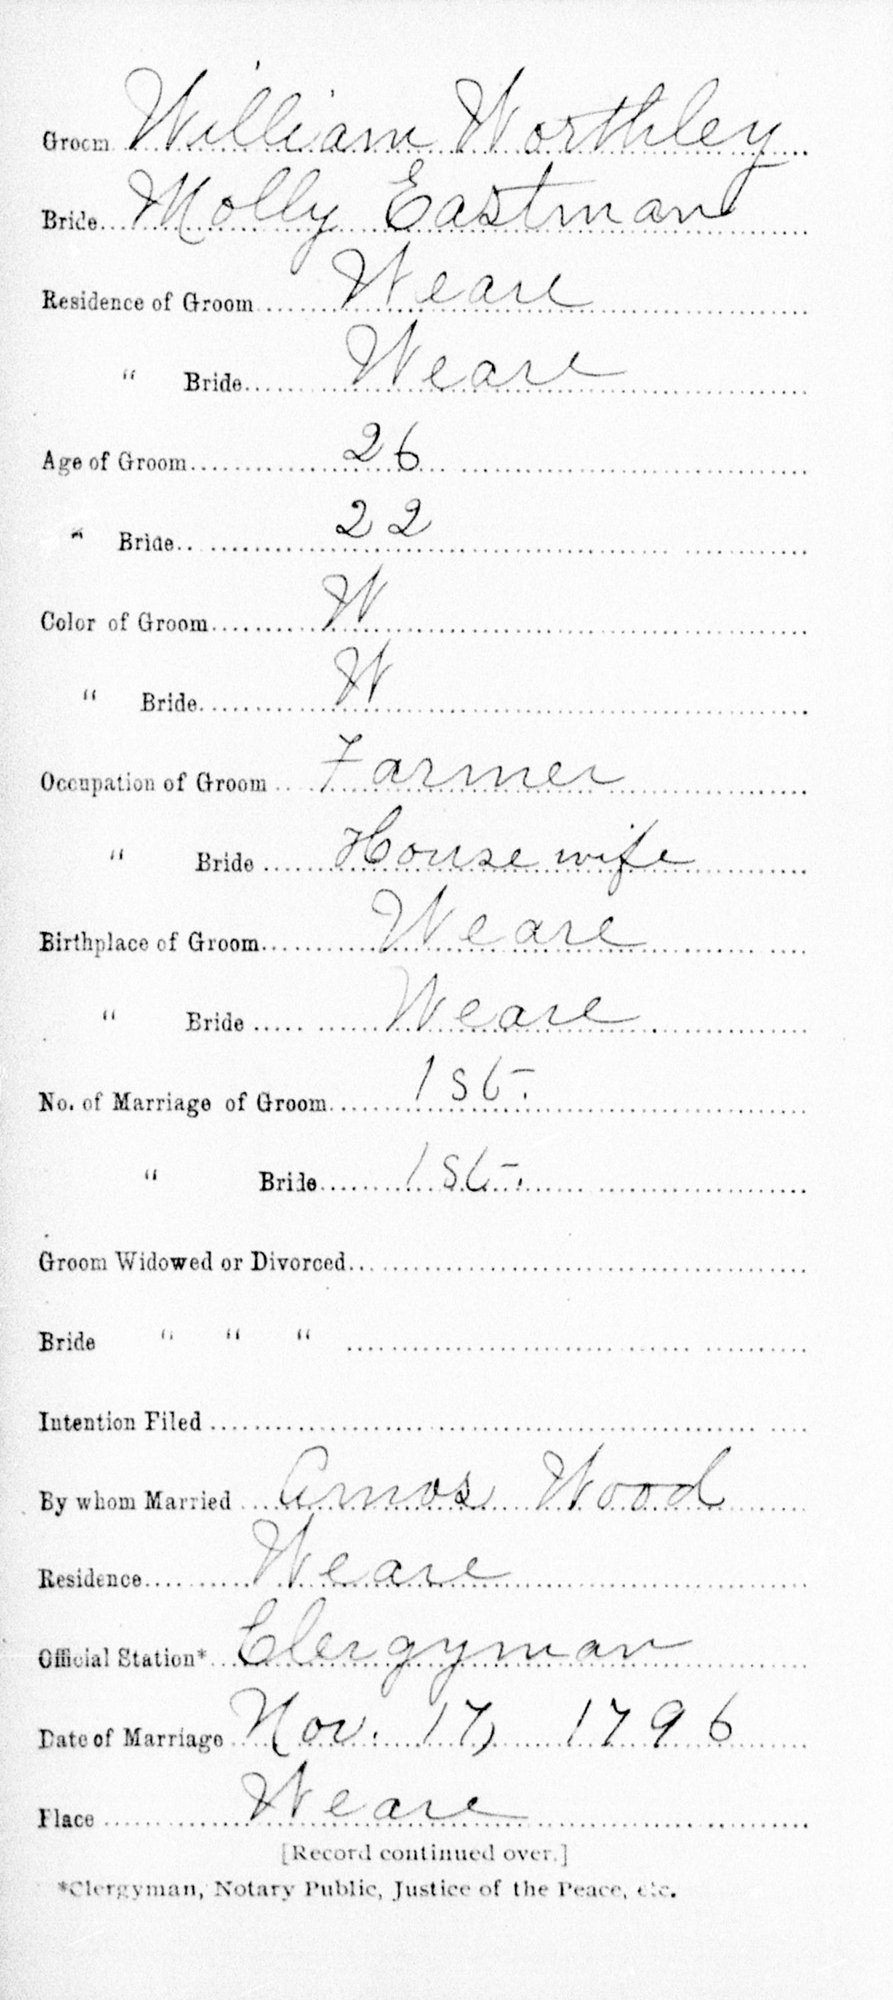 Groom William Worthley
Bride Molly Eastman
Residence of Groom Weare
" Bride Weare
Age of Groom 26
" Bride 22
Color of Groom W
" Bride W
Occupation of Groom Farmer
" Bride Housewife
Birthplace of Groom Weare
" Bride Weare
No. of Marriage of Groom 1st.
" Bride 1st.
Groom Widowed or Divorced
Bride " " "
Intention Filed
By whom Married Amos Wood
Residence Weare
Official Station* Clergyman
Date of Marriage Nov. 17, 1796
Place Weare
[Record continued over.]
*Clergyman, Notary Public, Justice of the Peace, etc.